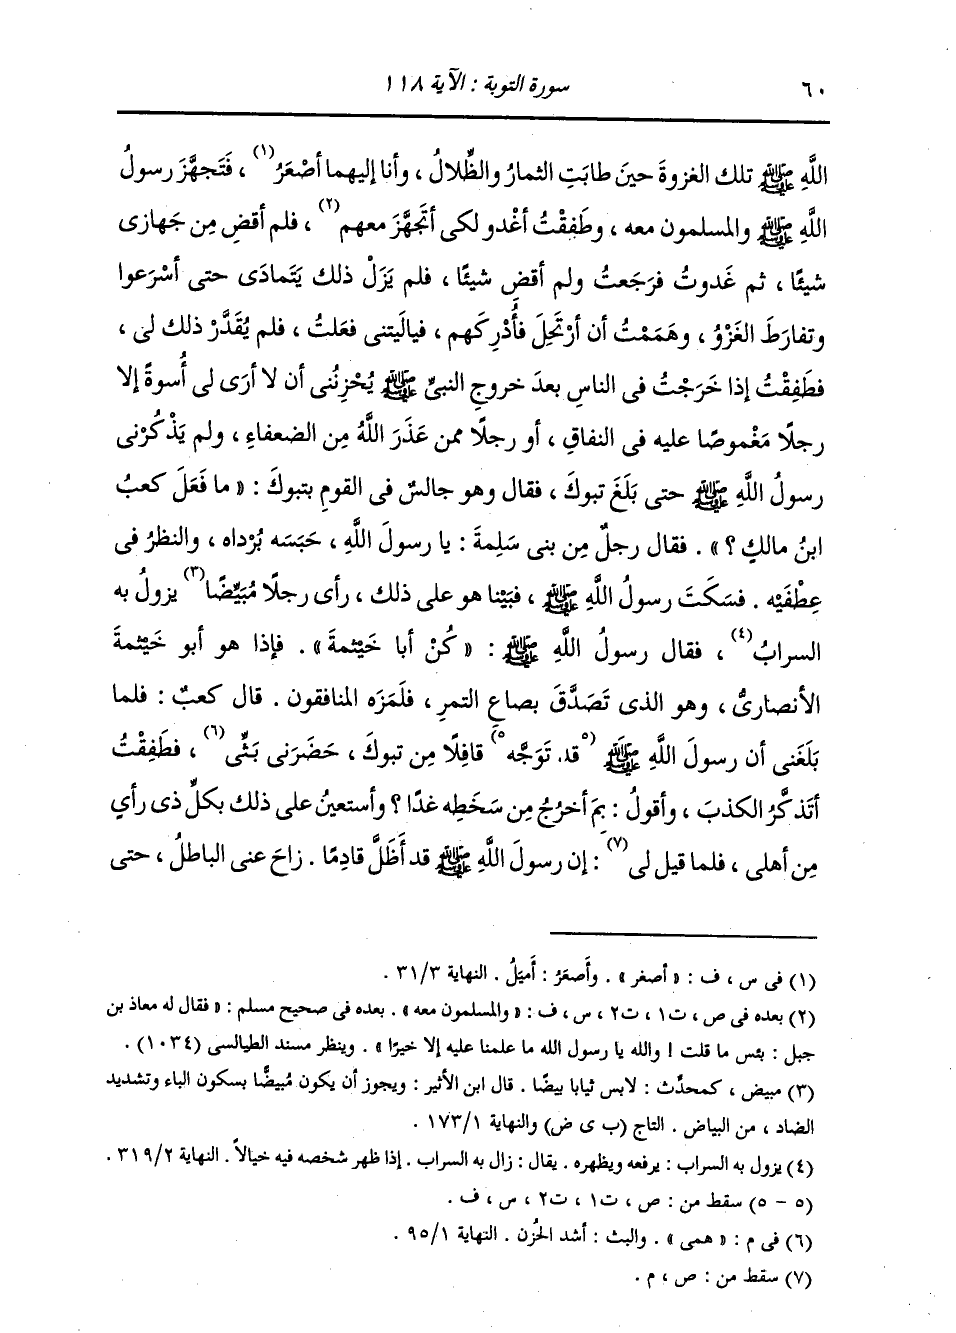 ٦٠
سورة التوبة : الآية ١١٨
اللَّهِ ﷺ تلك الغزوةَ حينَ طابَتِ الثمارُ والظِّلالُ ، وأنا إليهما أصْعَرُ(١) ، فَتَجهَّزَ رسولُ
اللَّهِ ﷺ والمسلمون معه ، وطَفِقْتُ أغْدو لكى أتَجَهَّزَ معهم(٢) ، فلم أقضِ مِن جَهازى
شيئًا ، ثم غَدوتُ فرَجَعتُ ولم أقضِ شيئًا ، فلم يَزَلْ ذلك يَتَمادَى حتى أسْرَعوا
وتفارَطَ الغَزْوُ ، وهَمَمْتُ أن أرْتَحِلَ فأُدْرِكَهم ، فيالَيتنى فعَلتُ ، فلم يُقَدَّرْ ذلك لى ،
فطَفِقْتُ إذا خَرَجْتُ فى الناسِ بعدَ خروجِ النبىِّ ﷺ يُحْزِنُنى أن لا أرَى لى أُسوةً إلا
رجلًا مَغْموصًا عليه فى النفاقِ ، أو رجلًا ممن عَذَرَ اللَّهُ مِن الضعفاءِ ، ولم يَذْكُرْنى
رسولُ اللَّهِ ﷺ حتى بَلَغَ تبوكَ ، فقال وهو جالسٌ فى القومِ بتبوكَ : « ما فَعَلَ كعبُ
ابنُ مالكٍ ؟ » . فقال رجلٌ مِن بنى سَلِمةَ : يا رسولَ اللَّهِ ، حَبَسَه بُرْداه ، والنظرُ فى
عِطْفَيْه . فسَكَتَ رسولُ اللَّهِ ﷺ ، فبَيْنا هو على ذلك ، رأى رجلًا مُبَيِّضًا(٣) يزولُ به
السرابُ(٤) ، فقال رسولُ اللَّهِ ﷺ : « كُنْ أبا خَيْثمةَ » . فإذا هو أبو خَيْثمةَ
الأنصارىُّ ، وهو الذى تَصَدَّقَ بصاعِ التمرِ ، فلَمَزَه المنافقون . قال كعبٌ : فلما
بَلَغَنى أن رسولَ اللَّهِ ﷺ (٥قد تَوَجَّه٥) قافلًا مِن تبوكَ ، حَضَرَنى بَثِّى(٦) ، فطَفِقْتُ
أتَذكَّرُ الكذبَ ، وأقولُ : بِمَ أخرُجُ مِن سَخَطِه غدًا ؟ وأستعينُ على ذلك بكلِّ ذى رأي
مِن أهلى ، فلما قيل لى(٧) : إن رسولَ اللَّهِ ﷺ قد أَظَلَّ قادِمًا . زاحَ عنى الباطلُ ، حتى
(١) فى س ، ف : « أصغر » . وأَصعَرُ : أميَلُ . النهاية ٣١/٣ .
(٢) بعده فى ص ، ت١ ، ت٢ ، س ، ف : « والمسلمون معه » . بعده فى صحيح مسلم : « فقال له معاذ بن
جبل : بئس ما قلت ! والله يا رسول الله ما علمنا عليه إلا خيرًا » . وينظر مسند الطيالسى (١٠٣٤) .
(٣) مبيض ، كمحدِّث : لابس ثيابا بيضًا . قال ابن الأثير : ويجوز أن يكون مُبيضًّا بسكون الباء وتشديد
الضاد ، من البياض . التاج (ب ى ض) والنهاية ١٧٣/١ .
(٤) يزول به السراب : يرفعه ويظهره . يقال : زال به السراب . إذا ظهر شخصه فيه خيالاً . النهاية ٣١٩/٢ .
(٥ - ٥) سقط من : ص ، ت١ ، ت٢ ، س ، ف .
(٦) فى م : « همى » . والبث : أشد الحُزن . النهاية ٩٥/١ .
(٧) سقط من : ص ، م .